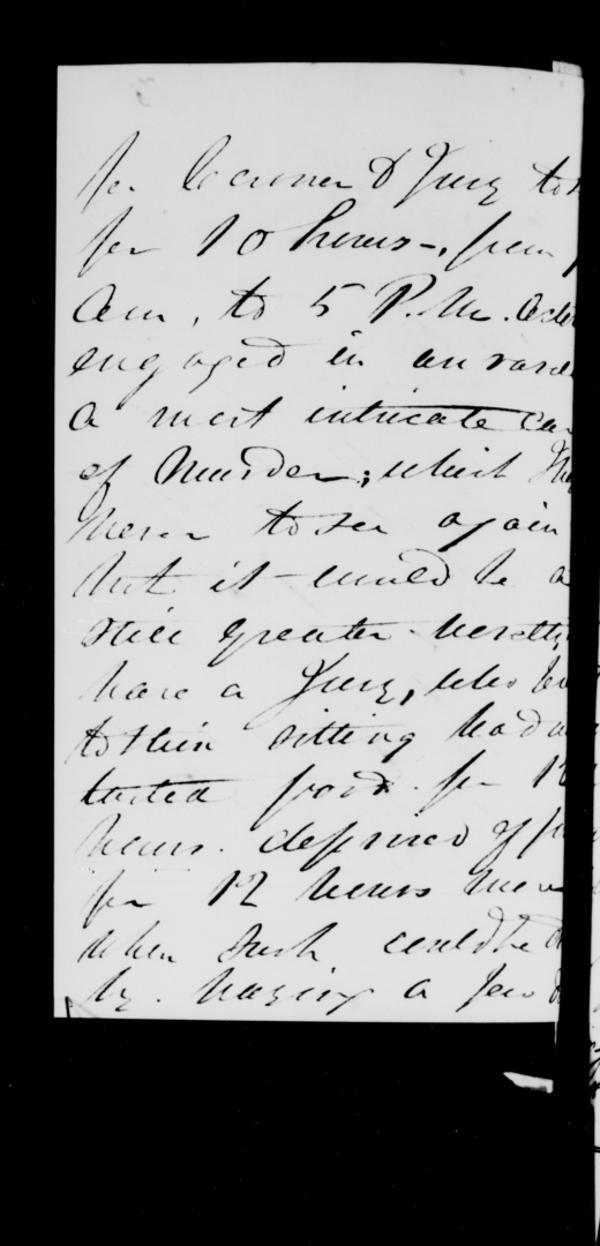 for Coroner & Jury to
for 10 hours -, from
a.m, to 5 P.M.
engaged in
a most intricate ca
of Murder; which
never to see again
but it would be a
still greater
have a Jury, who
to their sitting had
tasted food for 12
hours. deprived of
for 12 hours more
when such could be
by. having a few